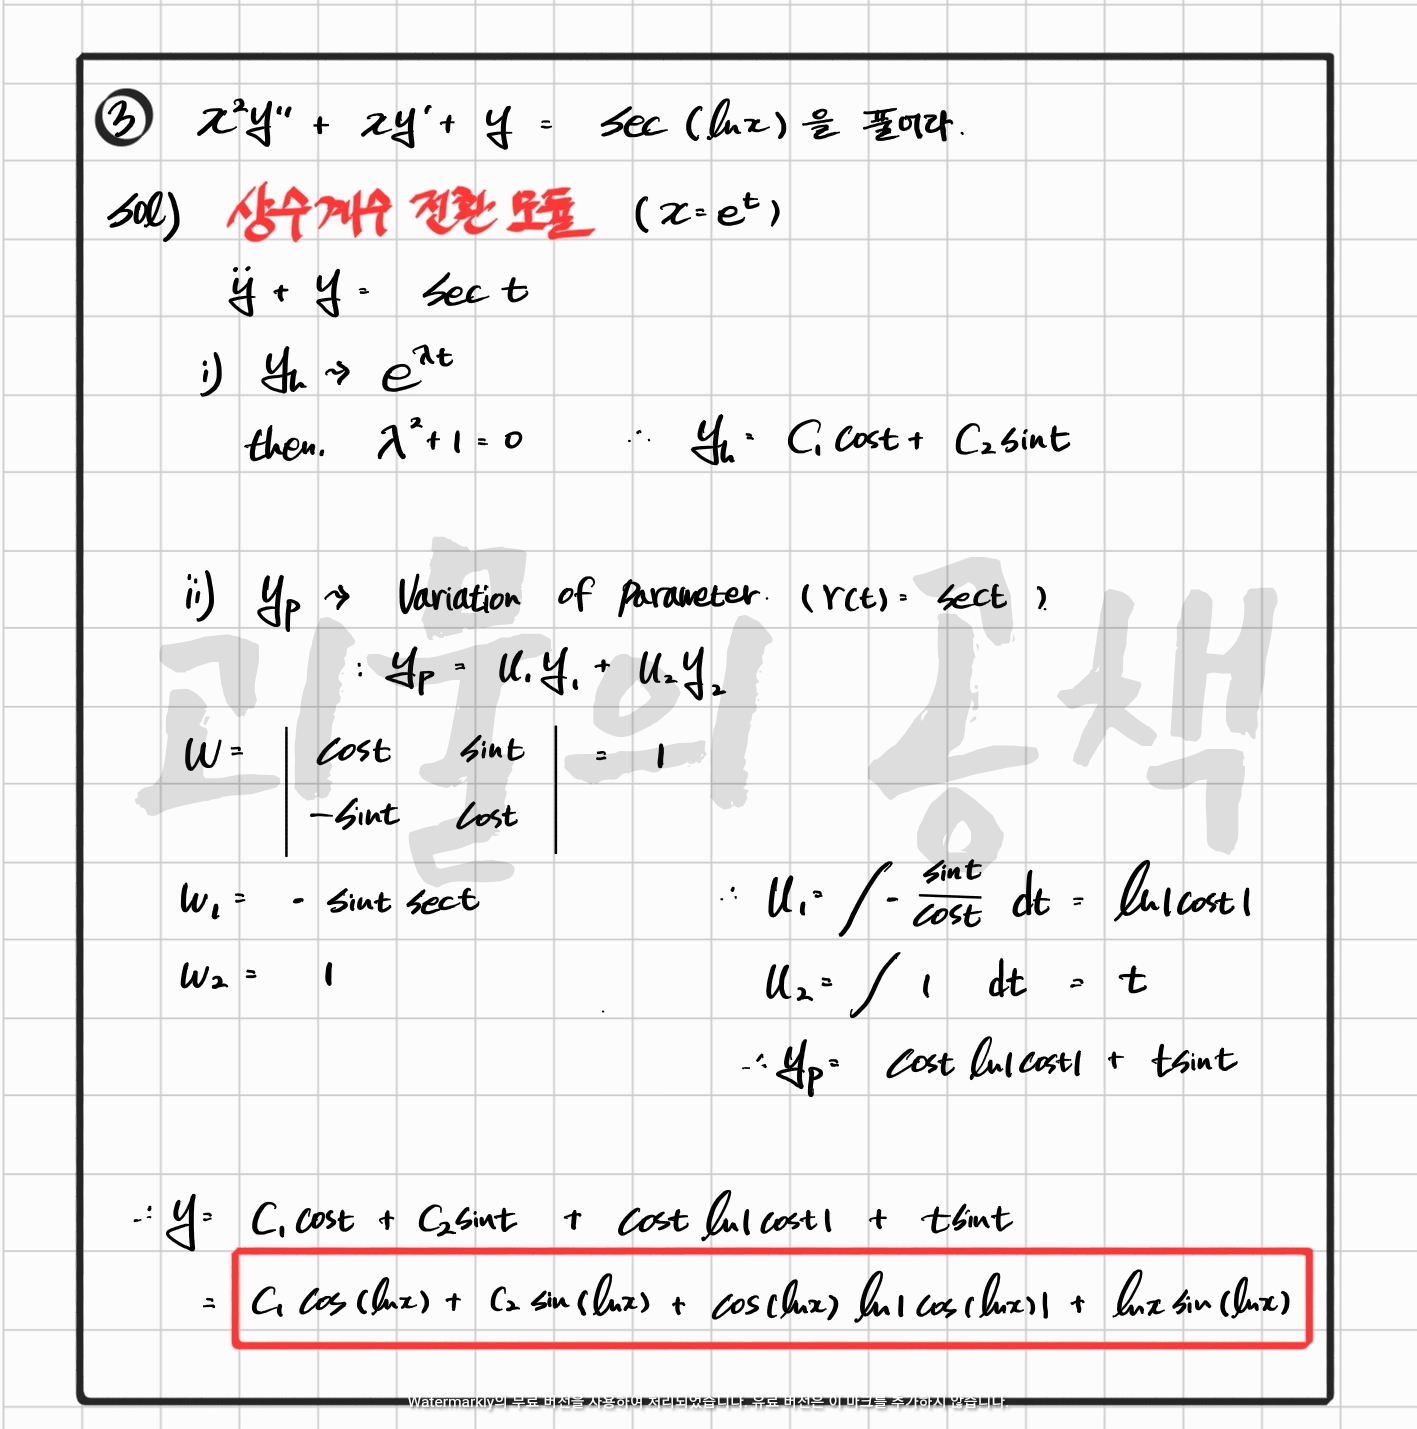 ③ x²y'' + xy' + y = sec (lnx) 을 풀어라.
sol) 상수계수 전환 모듈 (x = e^t)
ÿ + y = sec t
i) y_h → e^{λt}
then. λ² + 1 = 0 ∴ y_h = C₁ cost + C₂ sint
ii) y_p → Variation of Parameter. (r(t) = sect)
: y_p = u₁y₁ + u₂y₂
W = | cost sint | = 1
| -sint cost |
W₁ = - sint sect ∴ u₁ = ∫ - sint/cost dt = ln|cost|
W₂ = 1 u₂ = ∫ 1 dt = t
∴ y_p = cost ln|cost| + tsint
∴ y = C₁ cost + C₂ sint + cost ln|cost| + tsint
= C₁ cos(lnx) + C₂ sin(lnx) + cos(lnx) ln|cos(lnx)| + lnx sin(lnx)
괴물의 공책
Watermarkly의 무료 버전을 사용하여 처리되었습니다. 유료 버전은 이 마크를 추가하지 않습니다.